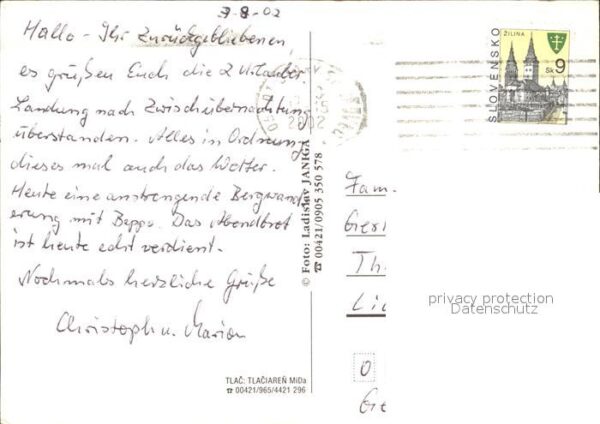 3-8-02
Hallo - Ihr Zurückgebliebenen,
es grüßen Euch die 2 Urlauber
Landung nach Zwischübernachtung
überstanden. Alles in Ordnung
dieses mal auch das Wetter.
Heute eine anstrengende Bergwand
erung mit Beppo. Das Abendbrot
ist heute echt verdient.
Nochmals herzliche Grüße
Christoph u. Marion
© Foto: Ladislav JANIGA
☎ 00421/0905 350 578
TLAČ: TLAČIAREŇ MiDa
☎ 00421/965/4421 296
2002
SLOVENSKO
ŽILINA
Sk 9
Fam.
Ger
Th
Li
privacy protection
Datenschutz
O
Ge